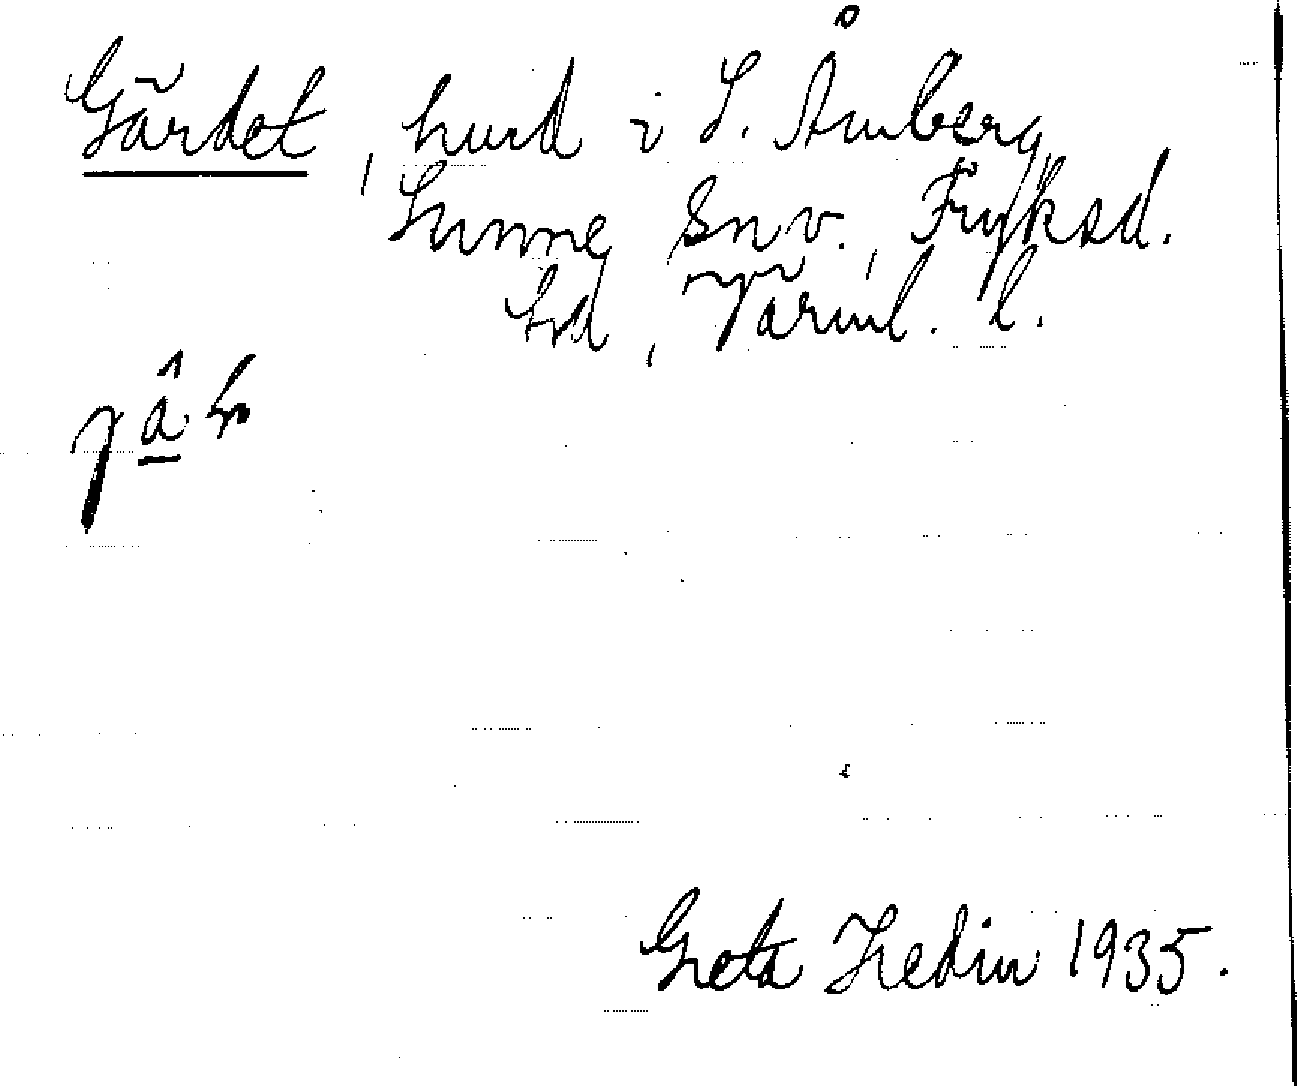 Gärdet, husd i S. Åmberg,
Sunne snv., Fryksd.
hd, Värml. l.
Greta Hedin 1935.